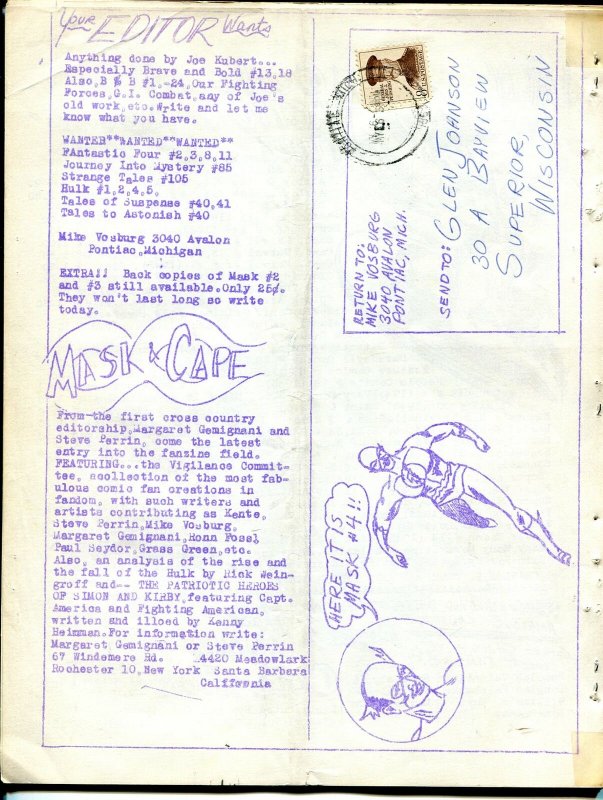 Your EDITOR Wants
Anything done by Joe Kubert...
Especially Brave and Bold #13,18
Also,B & B #1,-24,Our Fighting
Forces,G.I. Combat,any of Joe's
old work,etc.Write and let me
know what you have.
WANTED**WANTED**WANTED**
FAntastic Four #2,3,8,11
Journey Into Mystery #85
Strange Tales #105
Hulk #1,2,4,5,
Tales of Suspense #40,41
Tales to Astonish #40
Mike Vosburg 3040 Avalon
Pontiac,Michigan
EXTRA!! Back copies of Mask #2
and #3 still available.Only 25¢.
They won't last long so write
today.
MASK & CAPE
From the first cross country
editorship,Margaret Gemignani and
Steve Perrin, come the latest
entry into the fanzine field.
FEATURING...the Vigilance Commit-
tee, acollection of the most fab-
ulous comic fan creations in
fandom, with such writers and
artists contributing as Kente,
Steve Perrin,Mike Vosburg,
Margaret Gemignani,Ronn Foss,
Paul Seydor,Grass Green,etc.
Also, an analysis of the rise and
the fall of the Hulk by Rick Wein-
groff and-- THE PATRIOTIC HEROES
OF SIMON AND KIRBY,featuring Capt.
America and Fighting American,
written and illoed by Kenny
Heinman.For information write:
Margaret Gemignani or Steve Perrin
67 Windemere Rd. 4420 Meadowlark
Rochester 10,New York Santa Barbara
California
RETURN TO:
MIKE VOSBURG
3040 AVALON
PONTIAC, MICH.
SEND TO: GLEN JOHNSON
30 A BAYVIEW
SUPERIOR,
WISCONSIN
HERE IT IS
MASK #4!!